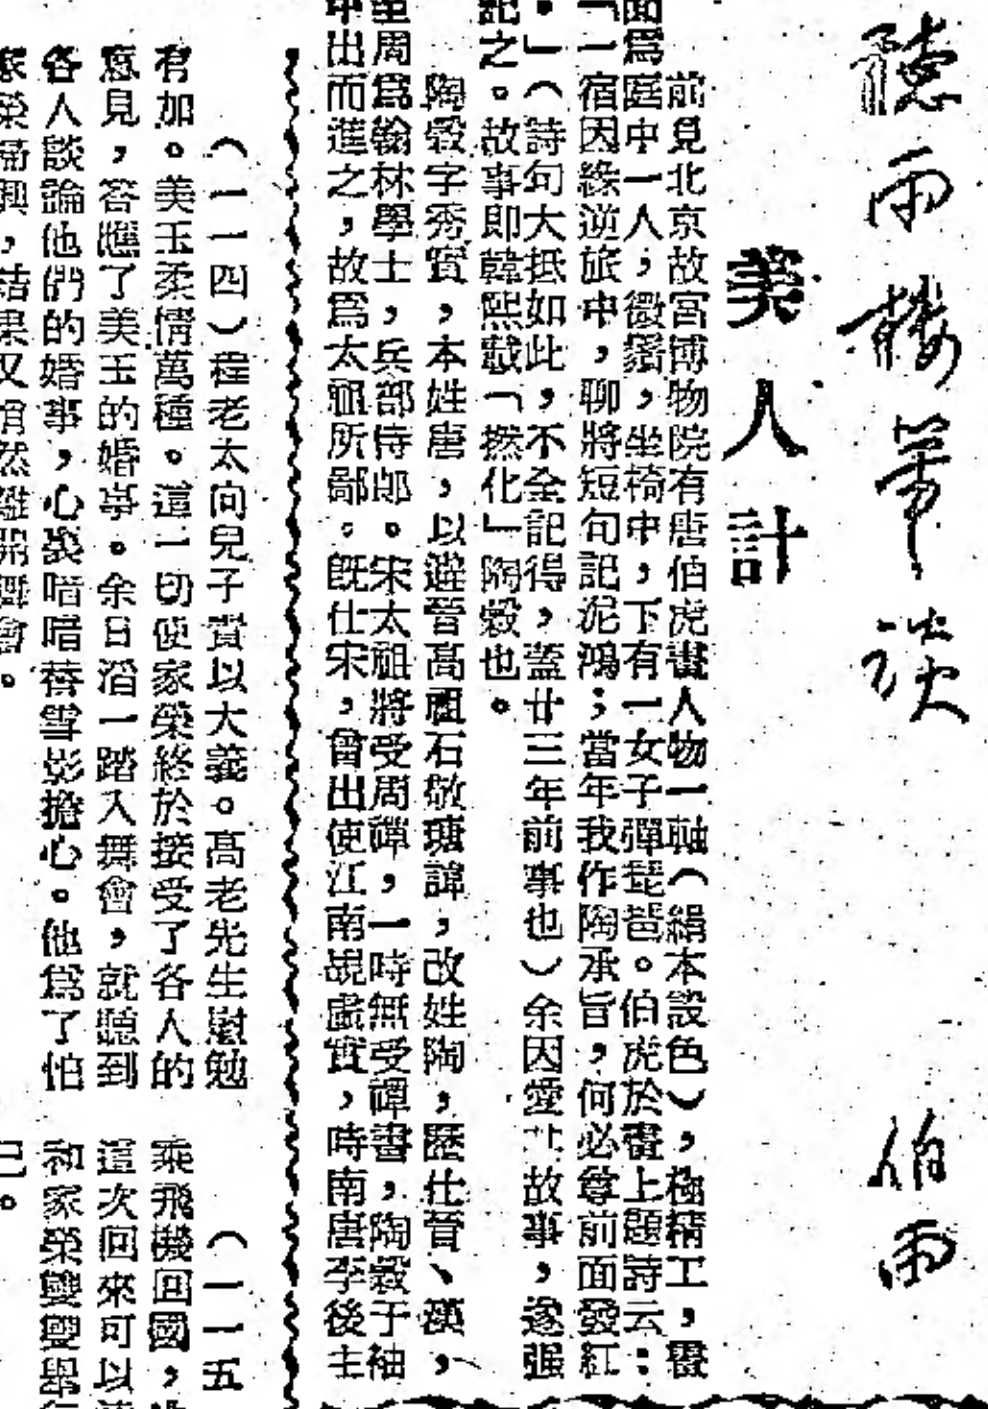 聽雨樓筆談
伯雨
美人計
前見北京故宮博物院有唐伯虎畫人物一軸（絹本設色），極精工，畫
面爲庭中一人，微鬚，坐椅中，下有一女子彈琵琶。伯虎於畫上題詩云：
「一宿因緣逆旅中，聊將短句記泥鴻；當年我作陶承旨，何必尊前面發紅
。」（詩句大抵如此，不全記得，蓋廿三年前事也）余因愛其故事，遂强
記之。故事即韓熙載「撚化」陶穀也。
陶穀字秀實，本姓唐，以避晉高祖石敬瑭諱，改姓陶，歷仕晉、漢，
至周爲翰林學士，兵部侍郎。宋太祖將受周禪，一時無受禪書，陶穀于袖
中出而進之，故爲太祖所鄙。旣仕宋，曾出使江南覘虛實，時南唐李後主
（一一四）程老太向兒子責以大義。高老先生慰勉
有加。美玉柔情萬種。這一切使家榮終於接受了各人的
意見，答應了美玉的婚事。余日滔一踏入舞會，就聽到
各人談論他們的婚事，心裏暗暗替雪影擔心。他爲了怕
家榮掃興，結果又悄然離開舞會。
（一一五
乘飛機回國，
這次回來可以
和家榮雙雙舉行
已。